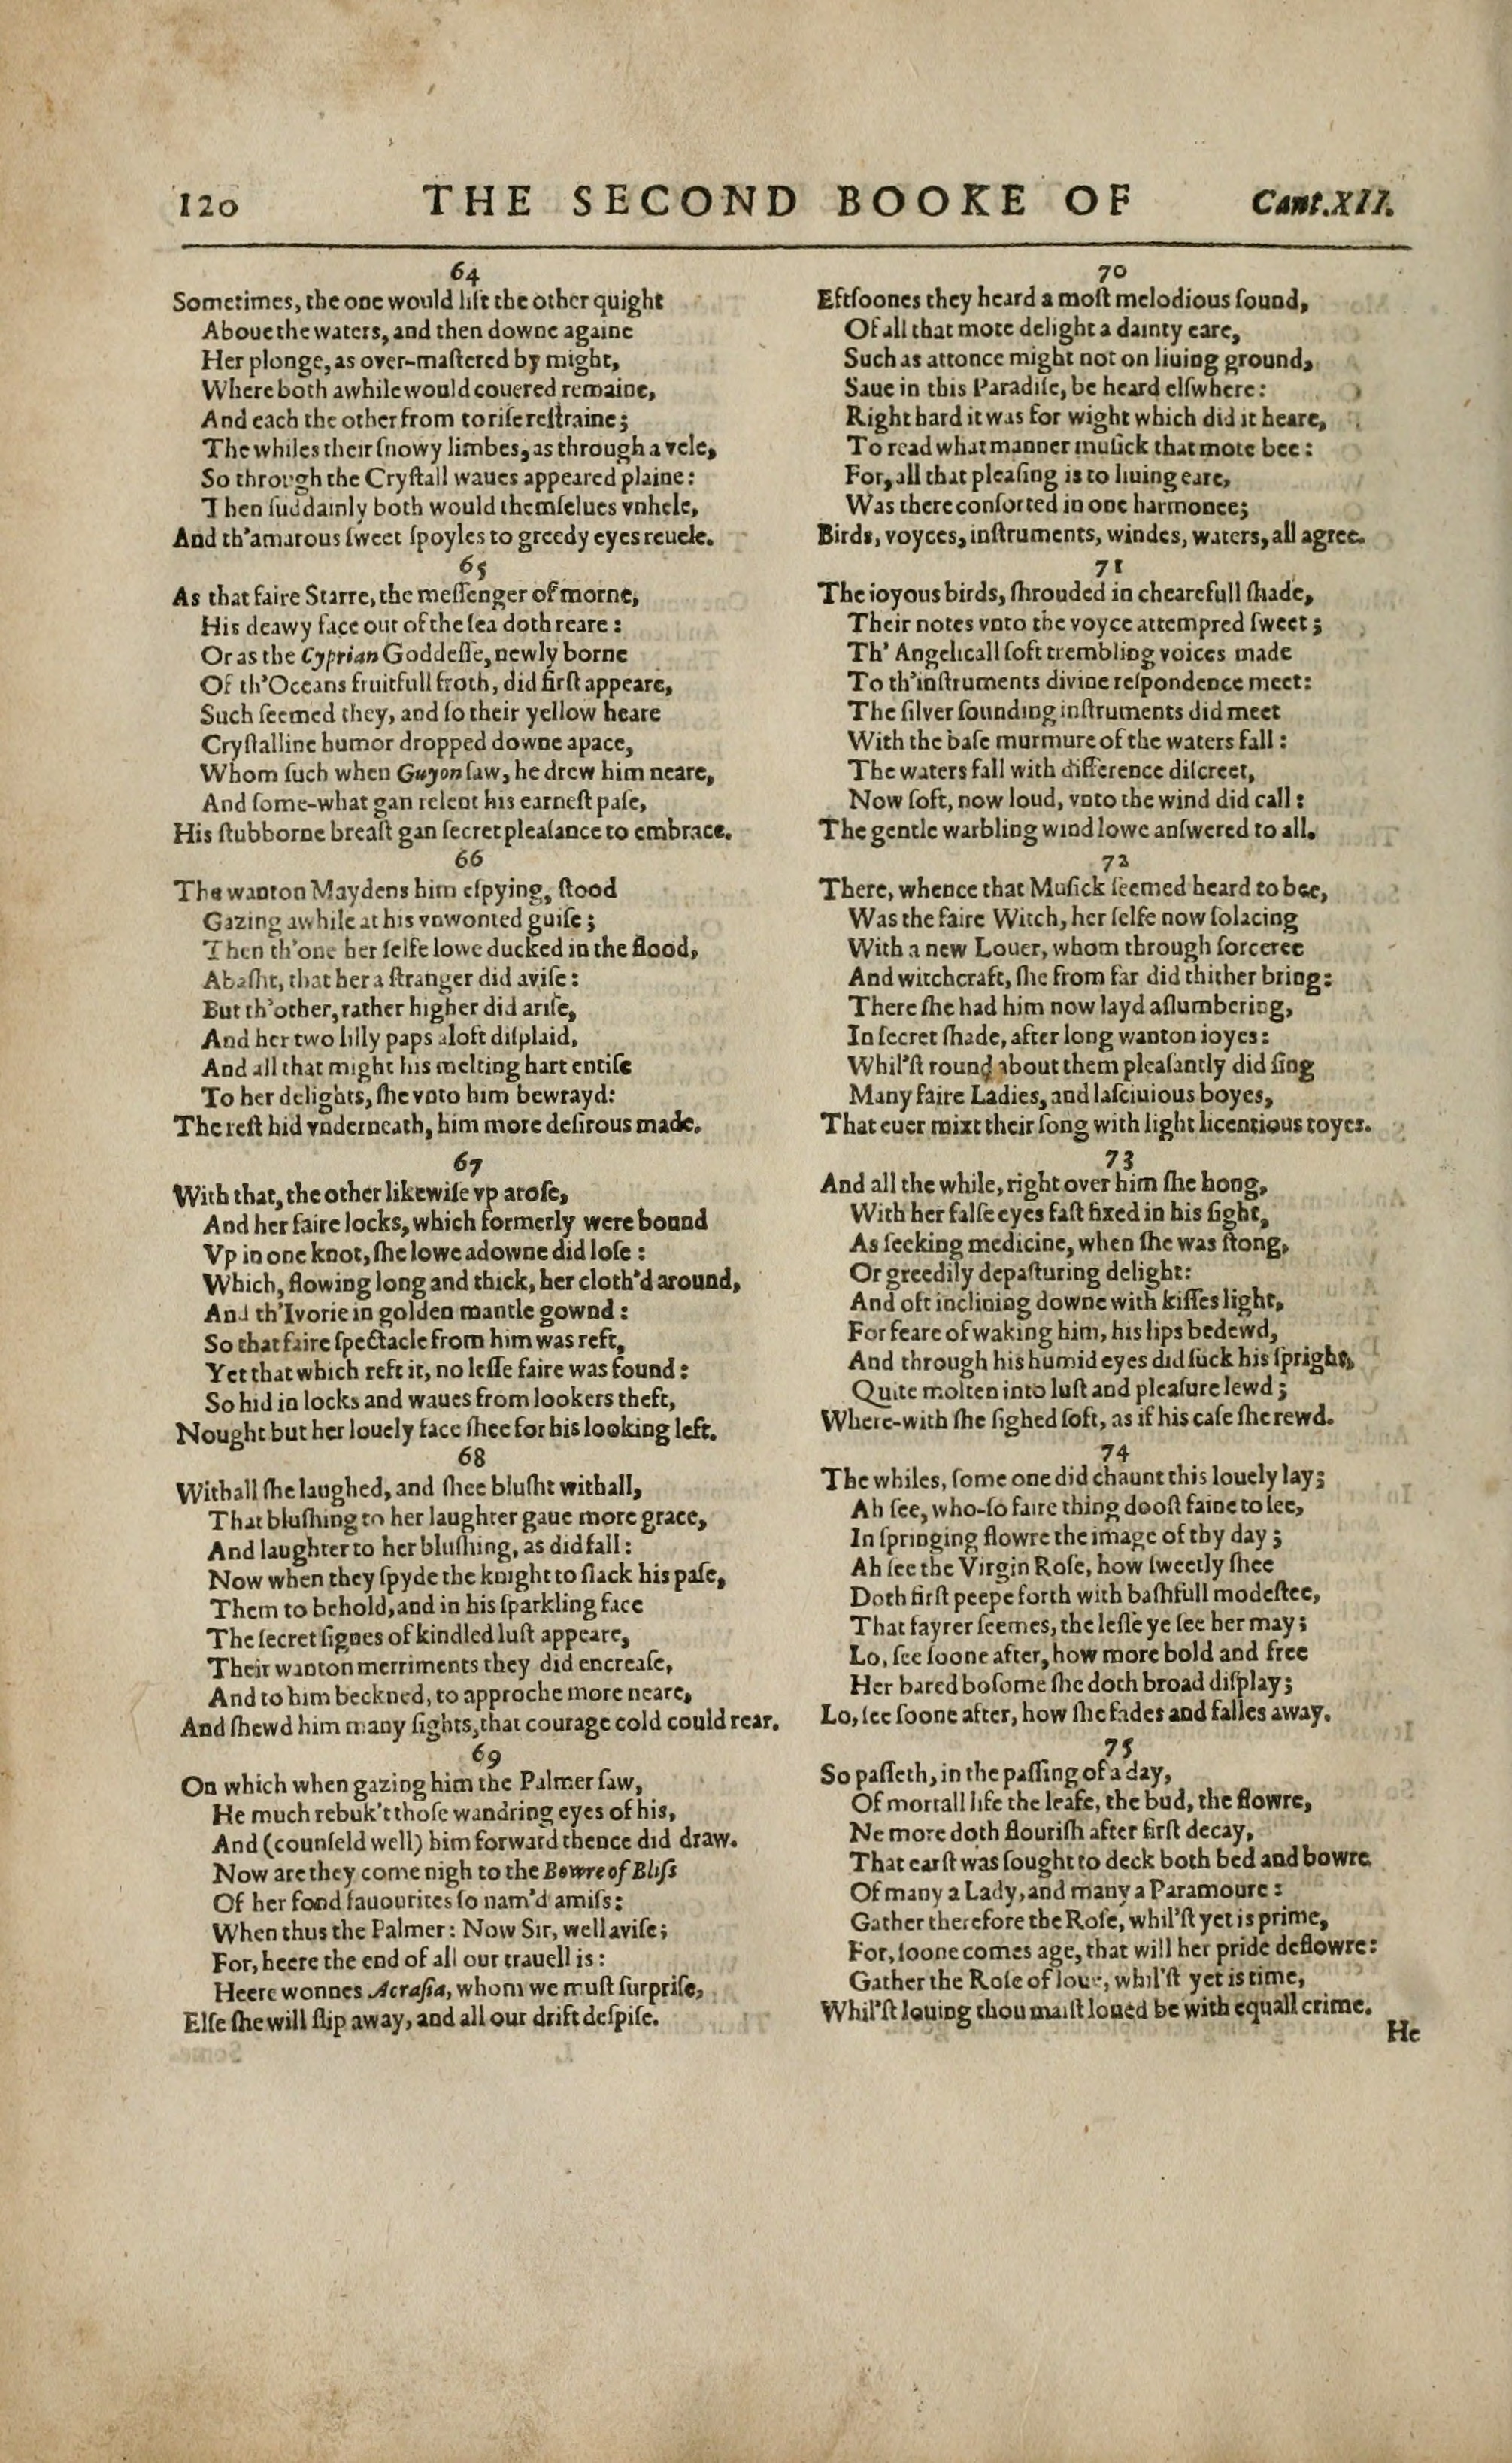 120 THE SECOND BOOKE OF Cant.XII.
64
Sometimes, the one would lift the other quight
Aboue the waters, and then downe againe
Her plonge, as over-maſtered by might,
Where both awhile would couered remaine,
And each the other from to riſe reſtraine;
The whiles their ſnowy limbes, as through a vele,
So through the Cryſtall waues appeared plaine:
Then ſuddainly both would themſelues vnhele,
And th'amarous ſweet ſpoyles to greedy eyes reuele.
65
As that faire Starre, the meſſenger of morne,
His deawy face out of the ſea doth reare:
Or as the Cyprian Goddeſſe, newly borne
Of th'Oceans fruitfull froth, did firſt appeare,
Such ſeemed they, and ſo their yellow heare
Cryſtalline humor dropped downe apace,
Whom ſuch when Guyon ſaw, he drew him neare,
And ſome-what gan relent his earneſt paſe,
His ſtubborne breaſt gan ſecret pleaſance to embrace.
66
The wanton Maydens him eſpying, ſtood
Gazing awhile at his vnwonted guiſe;
Then th'one her ſelfe lowe ducked in the flood,
Abaſht, that her a ſtranger did aviſe:
But th'other, rather higher did ariſe,
And her two lilly paps aloft diſplaid,
And all that might his melting hart entiſe
To her delights, ſhe vnto him bewrayd:
The reſt hid vnderneath, him more deſirous made.
67
With that, the other likewiſe vp aroſe,
And her faire locks, which formerly were bound
Vp in one knot, ſhe lowe adowne did loſe:
Which, flowing long and thick, her cloth'd around,
And th'Ivorie in golden mantle gownd:
So that faire ſpectacle from him was reft,
Yet that which reft it, no leſſe faire was found:
So hid in locks and waues from lookers theft,
Nought but her louely face ſhee for his looking left.
68
Withall ſhe laughed, and ſhee bluſht withall,
That bluſhing to her laughter gaue more grace,
And laughter to her bluſhing, as did fall:
Now when they ſpyde the knight to ſlack his paſe,
Them to behold, and in his ſparkling face
The ſecret ſignes of kindled luſt appeare,
Their wanton merriments they did encreaſe,
And to him beckned, to approche more neare,
And ſhewd him many ſights, that courage cold could rear.
69
On which when gazing him the Palmer ſaw,
He much rebuk't thoſe wandring eyes of his,
And (counſeld well) him forward thence did draw.
Now are they come nigh to the Bowre of Bliſs
Of her fond fauourites ſo nam'd amiſs:
When thus the Palmer: Now Sir, well aviſe;
For, heere the end of all our trauell is:
Heere wonnes Acraſia, whom we muſt ſurpriſe,
Elſe ſhe will ſlip away, and all our drift deſpiſe.
70
Eftſoones they heard a moſt melodious ſound,
Of all that mote delight a dainty eare,
Such as attonce might not on liuing ground,
Saue in this Paradiſe, be heard elſwhere:
Right hard it was for wight which did it heare,
To read what manner muſick that mote bee:
For, all that pleaſing is to liuing eare,
Was there conſorted in one harmonee;
Birds, voyces, inſtruments, windes, waters, all agree.
71
The ioyous birds, ſhrouded in chearefull ſhade,
Their notes vnto the voyce attempred ſweet;
Th' Angelicall ſoft trembling voices made
To th'inſtruments divine reſpondence meet:
The ſilver ſounding inſtruments did meet
With the baſe murmure of the waters fall:
The waters fall with difference diſcreet,
Now ſoft, now loud, vnto the wind did call:
The gentle warbling wind lowe anſwered to all.
72
There, whence that Muſick ſeemed heard to bee,
Was the faire Witch, her ſelfe now ſolacing
With a new Louer, whom through ſorceree
And witchcraft, ſhe from far did thither bring:
There ſhe had him now layd aſlumbering,
In ſecret ſhade, after long wanton ioyes:
Whil'ſt round about them pleaſantly did ſing
Many faire Ladies, and laſciuious boyes,
That euer mixt their ſong with light licentious toyes.
73
And all the while, right over him ſhe hong,
With her falſe eyes faſt fixed in his ſight,
As ſeeking medicine, when ſhe was ſtong,
Or greedily depaſturing delight:
And oft inclining downe with kiſſes light,
For feare of waking him, his lips bedewd,
And through his humid eyes did ſuck his ſpright,
Quite molten into luſt and pleaſure lewd;
Where-with ſhe ſighed ſoft, as if his caſe ſhe rewd.
74
The whiles, ſome one did chaunt this louely lay;
Ah ſee, who-ſo faire thing dooſt faine to ſee,
In ſpringing flowre the image of thy day;
Ah ſee the Virgin Roſe, how ſweetly ſhee
Doth firſt peepe forth with baſhfull modeſtee,
That fayrer ſeemes, the leſſe ye ſee her may;
Lo, ſee ſoone after, how more bold and free
Her bared boſome ſhe doth broad diſplay;
Lo, ſee ſoone after, how ſhe fades and falles away.
75
So paſſeth, in the paſſing of a day,
Of mortall life the leafe, the bud, the flowre,
Ne more doth flouriſh after firſt decay,
That earſt was ſought to deck both bed and bowre
Of many a Lady, and many a Paramoure:
Gather therefore the Roſe, whil'ſt yet is prime,
For, ſoone comes age, that will her pride deflowre:
Gather the Roſe of loue, whil'ſt yet is time,
Whil'ſt louing thou maiſt loued be with equall crime.
He